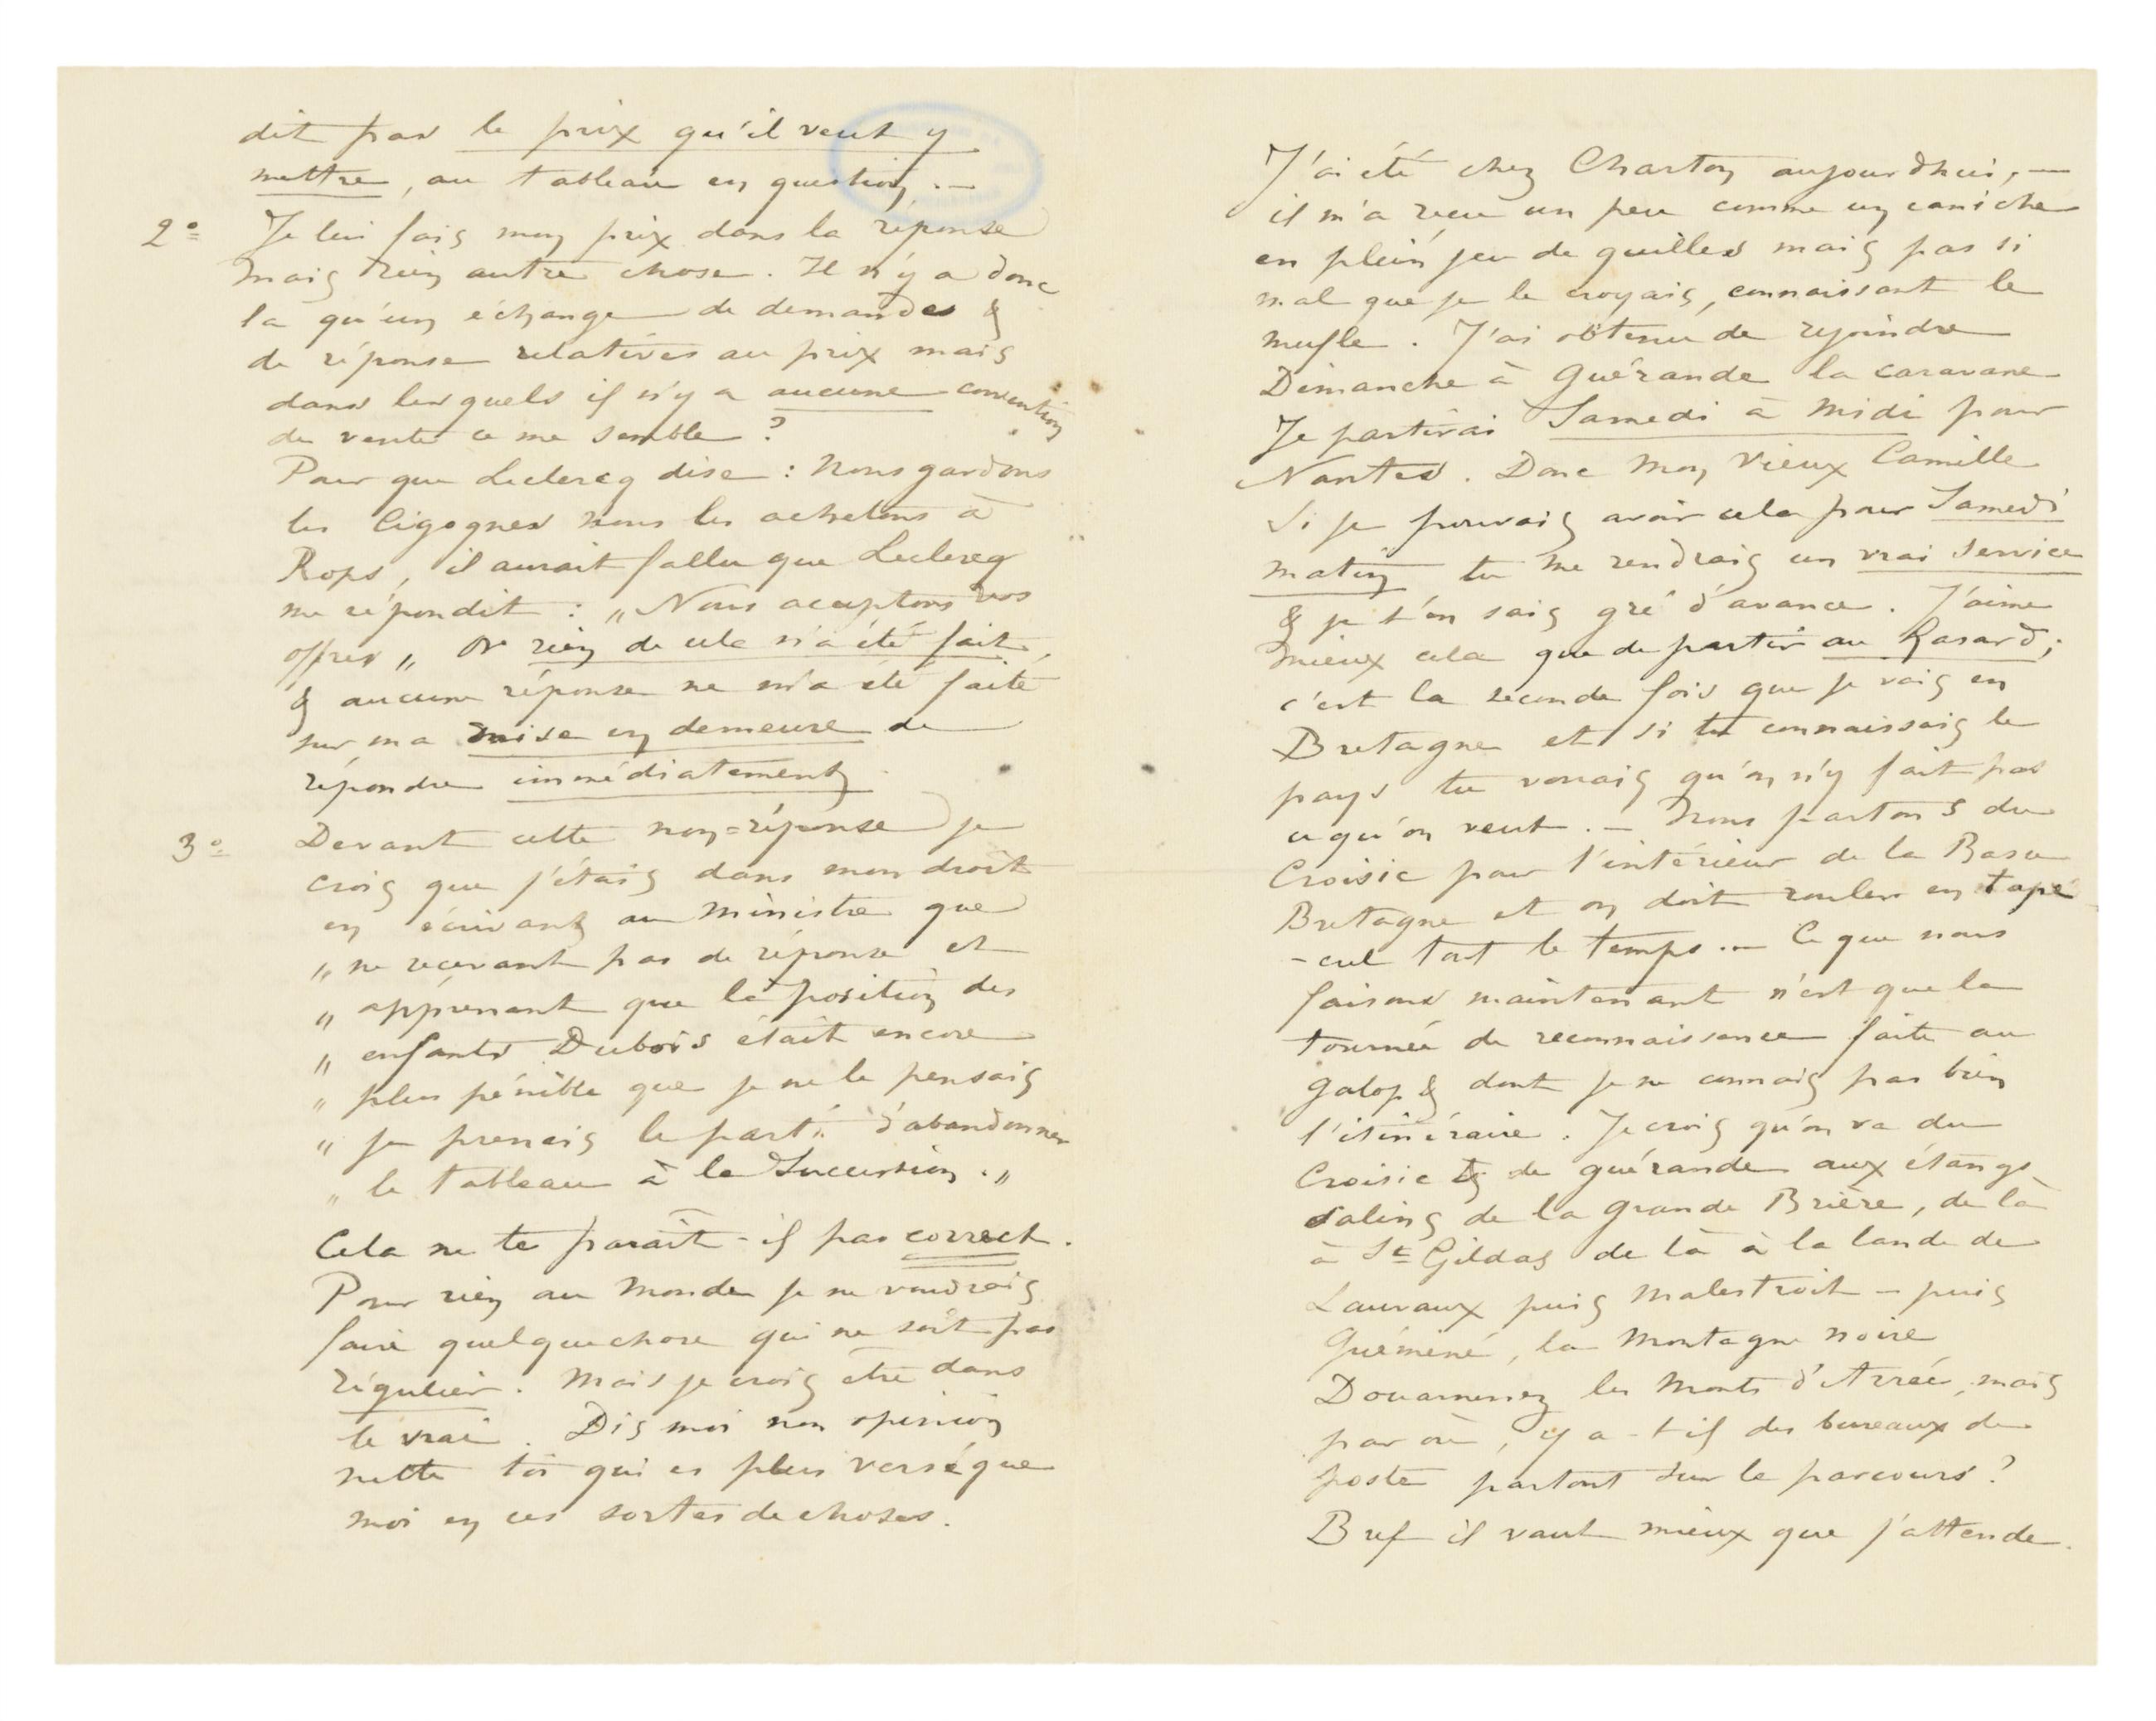 dit pas le prix qu'il veut y
mettre, au tableau en question. —
2° Je lui fais mon prix dans la réponse
mais rien autre chose. Il n'y a donc
la qu'un échange de demandes &
de réponse relatives au prix mais
dans lesquels il n'y a aucune convention
de vente ce me semble ?
Pour que Leclercq dise : Nous gardons
les Cigognes nous les achetons à
Rops, il aurait fallu que Leclercq
me répondit : „ Nous acceptons vos
offres „ Or rien de cela n'a été fait,
& aucune réponse ne m'a été faite
sur ma mise en demeure de
répondre immédiatement
3° Devant cette non=réponse je
crois que j'étais dans mon droit
en écrivant au Ministre que
„ ne recevant pas de réponse et
„ apprenant que la position des
„ enfants Dubois était encore
„ plus pénible que je ne le pensais
„ je prenais le parti d'abandonner
„ le tableau à la Succession. „
Cela ne te paraît-il pas correct.
Pour rien au monde je ne voudrais
faire quelquechose qui ne soit pas
régulier. Mais je crois etre dans
le vrai. Dis moi non opinion
nette toi qui es plus versé que
moi en ces sortes de choses.
J'ai été chez Charton aujourdhui, —
il m'a recu un peu comme un caniche
en plein jeu de quilles mais pas si
mal que je le croyais, connaissant le
mufle. J'ai obtenu de rejoindre
Dimanche à Guérande la caravane
Je partirai Samedi à midi pour
Nantes. Donc Mon Vieux Camille
Si je pouvais avoir cela pour Samedi
matin tu me rendrais un vrai service
& je t'en sais gré d'avance. J'aime
mieux cela que de partir au hasard;
c'est la seconde fois que je vais en
Bretagne et si tu connaissais le
pays tu verrais qu'on n'y fait pas
ce qu'on veut. — Nous partons du
Croisic pour l'intérieur de la Basse
Bretagne et on doit rouler en tape
-cul tout le temps. — Ce que nous
faisons maintenant n'est que la
tournée de reconnaissance faite au
galop & dont je ne connais pas bien
l'itinéraire. Je crois qu'on va du
Croisic & de Guérande aux étangs
salins de la Grande Brière, de là
à St Gildas de là à la lande de
Lauvaux puis Malestroit — puis
Guéméné, la Montagne noire
Douarnenez les Monts d'Arrée, mais
par où, y a-t-il des bureaux de
poste partout sur le parcours ?
Bref il vaut mieux que j'attende.